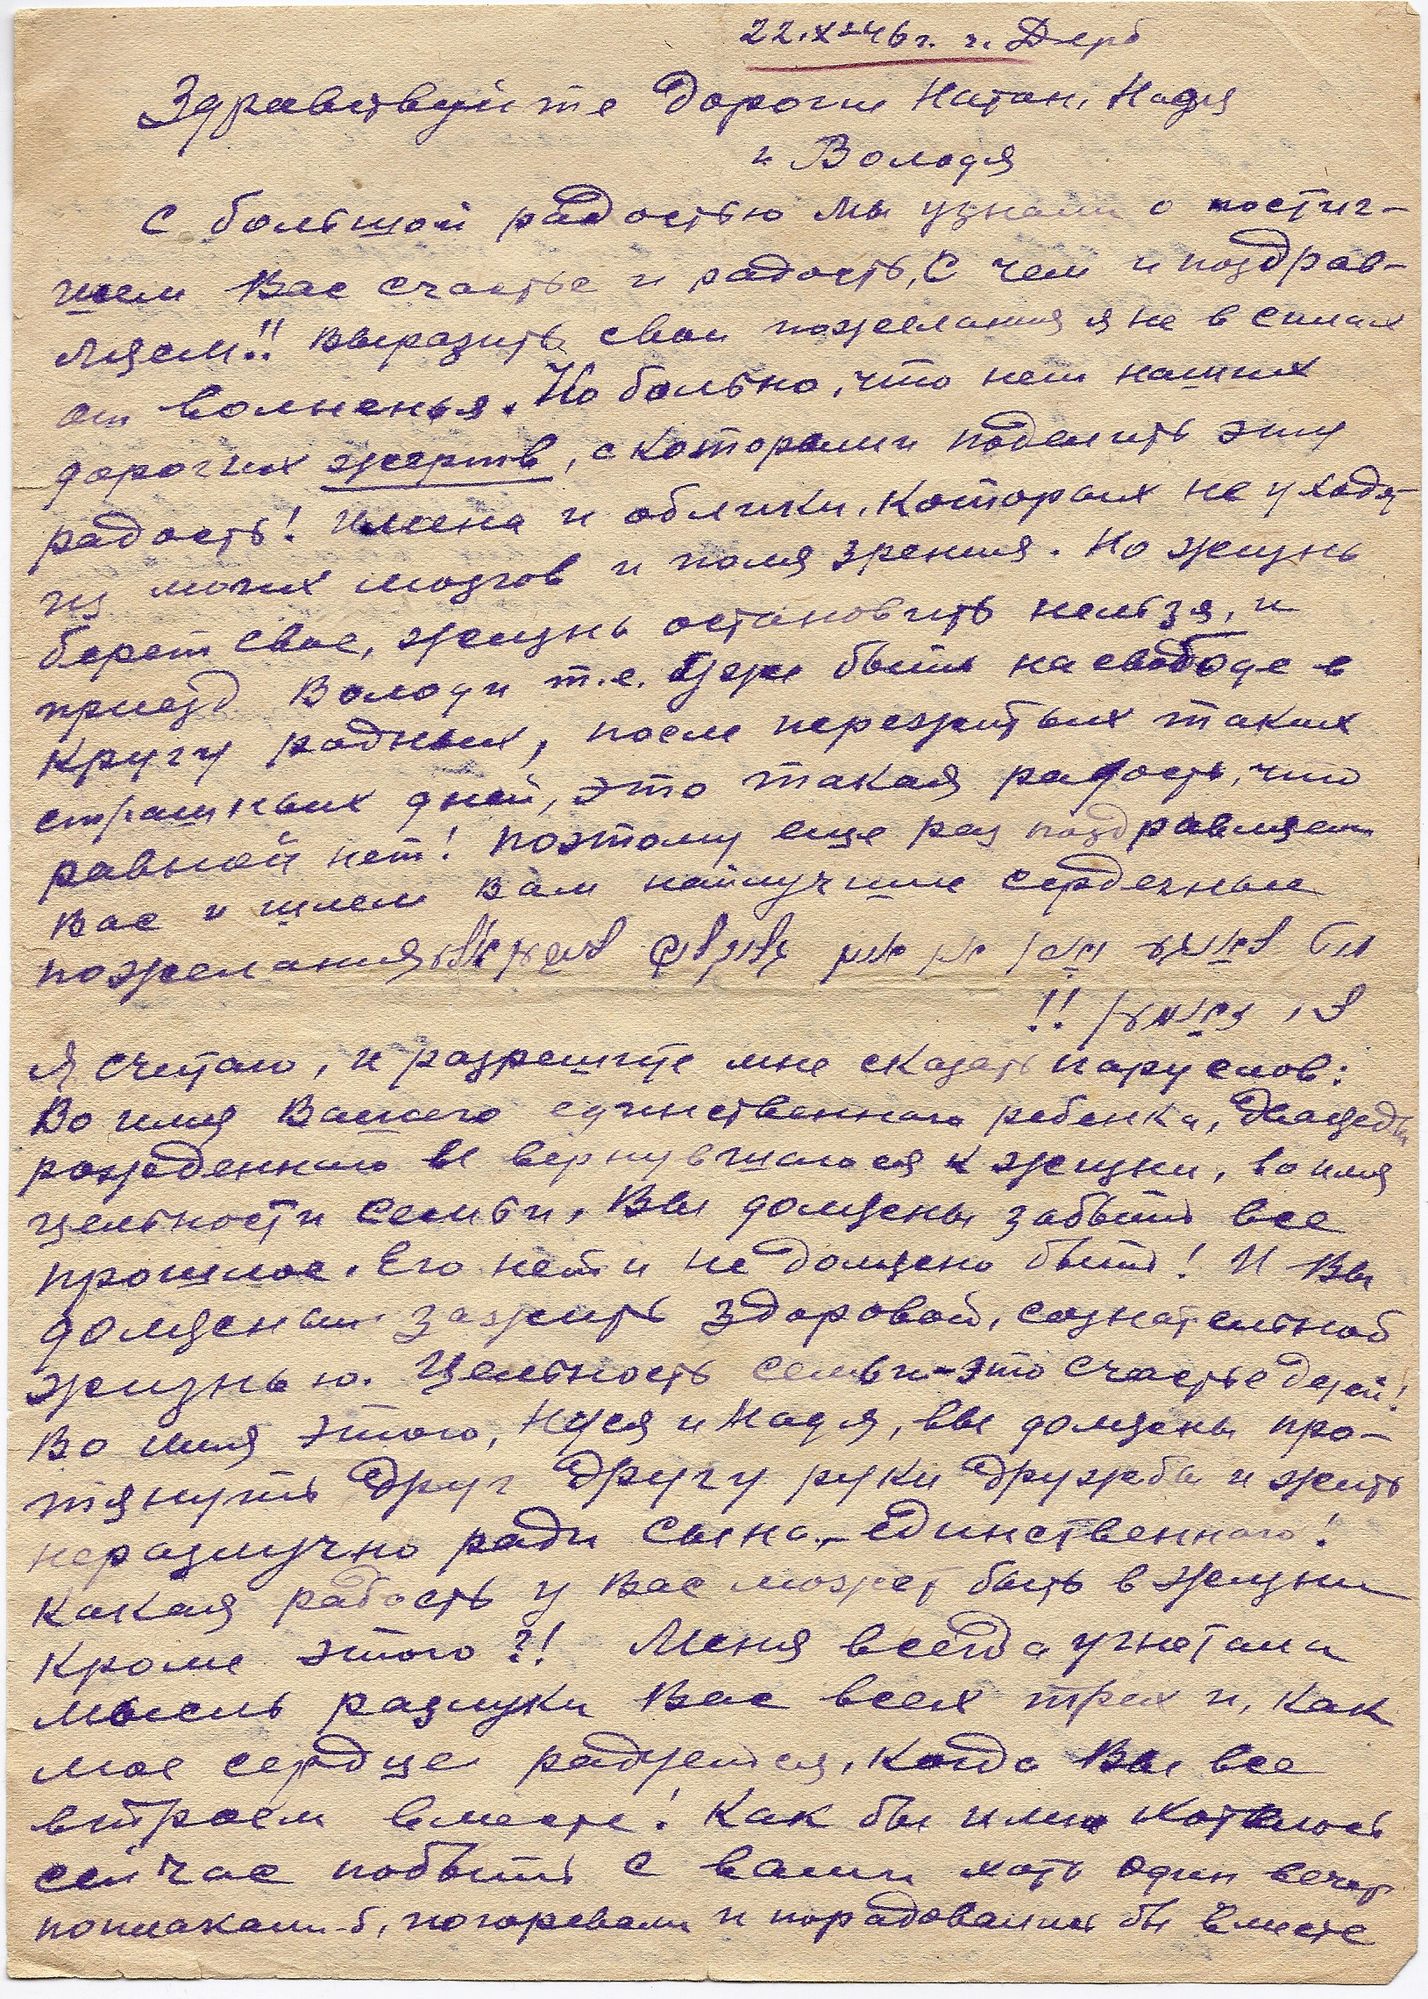 22.X-46 г. г. Дерб
Здравствуйте дорогие Натан, Надя
и Володя
С большой радостью мы узнали о постиг-
шем Вас счастье и радость, С чем и поздрав-
ляем!! Выразить свои пожелания я не в силах
от волненья. Но больно, что нет наших
дорогих жертв, с которыми поделить эту
радость! Имена и облики, которых не уходят
из моих мозгов и поля зрения. Но жизнь
берет свое, жизнь остановить нельзя, и
приезд Володи т.е. уже быть на свободе в
кругу родных, после пережитых таких
страшных дней, это такая радость, что
равной нет! Поэтому еще раз поздравляем
Вас и шлем Вам наилучшие сердечные
пожелания
!!
Я считаю, и разрешите мне сказать пару слов:
Во имя Вашего единственного ребенка, дважды
рожденного и вернувшагося к жизни, во имя
цельности семьи, Вы должны забыть все
прошлое. Его нет и не должно быть! И Вы
должны зажить здоровой, сознательной
жизнью. Цельность семьи - это счастье детей!
Во имя этого, Нуся и Надя, вы должны про-
тянуть друг другу руки дружбы и жить
неразлучно ради сына - единственного!
Какая радость у Вас может быть в жизни
кроме этого?! Меня всегда угнетала
мысль разлуки Вас всех трех и, как
мое сердце радуется, когда Вы все
втроем вместе! Как бы мне хотелось
сейчас побыть с вами хоть один вечер
поплакали-б, погоревали и порадовались бы вместе